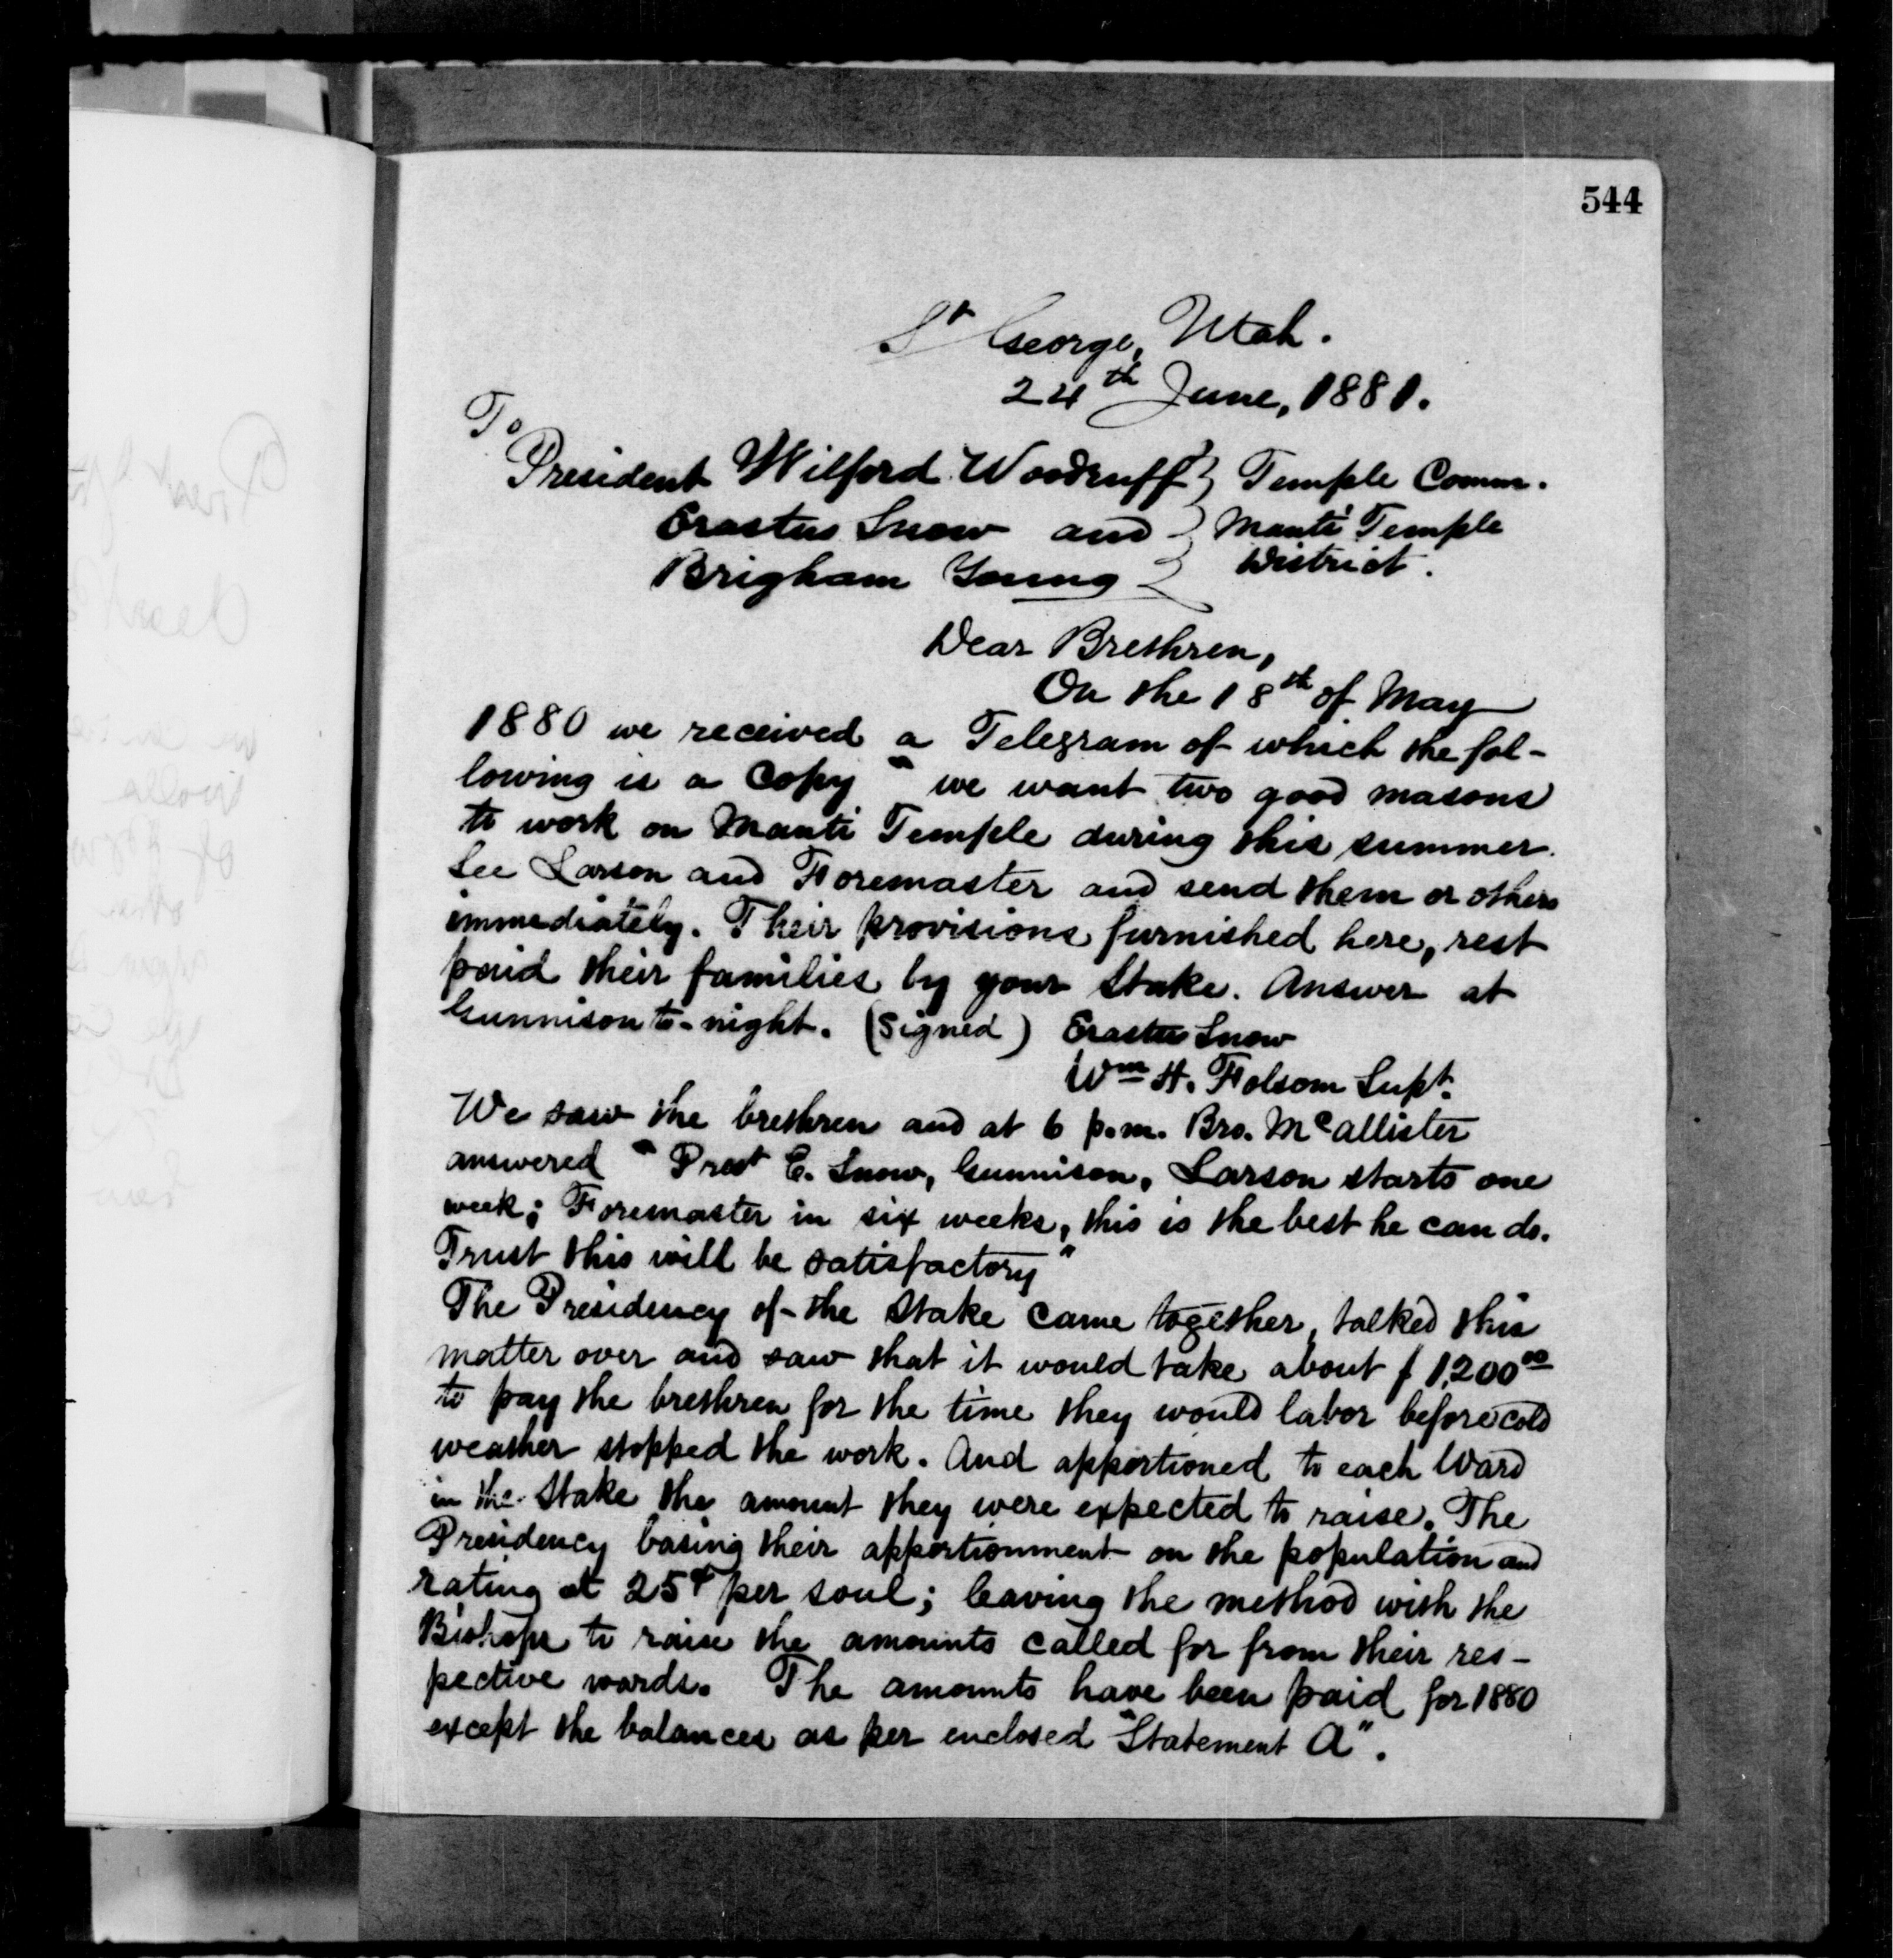 544
St George, Utah.
24th June, 1881.
To
President Wilford Woodruff } Temple Comm.
Erastus Snow and } Manti Temple
Brigham Young } District.
Dear Brethren,
On the 18th of May
1880 we received a Telegram of which the fol-
lowing is a Copy " we want two good masons
to work on Manti Temple during this summer.
See Larson and Foremaster and send them or others
immediately. Their provisions furnished here, rest
paid their families by your Stake. Answer at
Gunnison to-night. (Signed) Erastus Snow
Wm H. Folsom Supt.
We saw the brethren and at 6 p.m. Bro. McAllister
answered " Prest E. Snow, Gunnison, Larson starts one
week; Foremaster in six weeks, this is the best he can do.
Trust this will be satisfactory"
The Presidency of the Stake came together, talked this
matter over and saw that it would take about $ 1,200 00
to pay the brethren for the time they would labor before cold
weather stopped the work. And apportioned to each Ward
in the Stake the amount they were expected to raise. The
Presidency basing their apportionment on the population and
rating at 25¢ per soul; leaving the method with the
Bishops to raise the amounts called for from their res-
pective wards. The amounts have been paid for 1880
except the balances as per enclosed "Statement A".